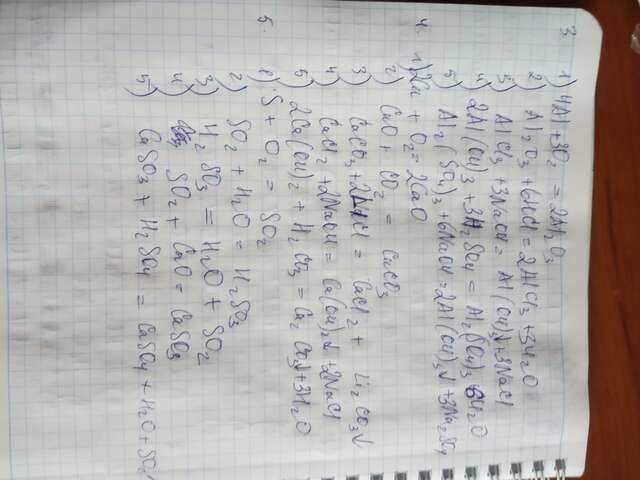 3
1) 4Al + 3O₂ = 2Al₂O₃
2) Al₂O₃ + 6HCl = 2AlCl₃ + 3H₂O
3) AlCl₃ + 3NaOH = Al(OH)₃↓ + 3NaCl
4) 2Al(OH)₃ + 3H₂SO₄ = Al₂(SO₄)₃ + 6H₂O
5) Al₂(SO₄)₃ + 6NaOH = 2Al(OH)₃↓ + 3Na₂SO₄
4. 1) 2Ca + O₂ = 2CaO
2) CaO + CO₂ = CaCO₃
3) CaCO₃ + 2LiCl = CaCl₂ + Li₂CO₃↓
4) CaCl₂ + 2NaOH = Ca(OH)₂↓ + 2NaCl
5) 2Ca(OH)₂ + H₂CO₃ = Ca₂CO₃↓ + 3H₂O
5. 1) S + O₂ = SO₂
2) SO₂ + H₂O = H₂SO₃
3) H₂SO₃ = H₂O + SO₂
4) SO₂ + CaO = CaSO₃
5) CaSO₃ + H₂SO₄ = CaSO₄ + H₂O + SO₂↑